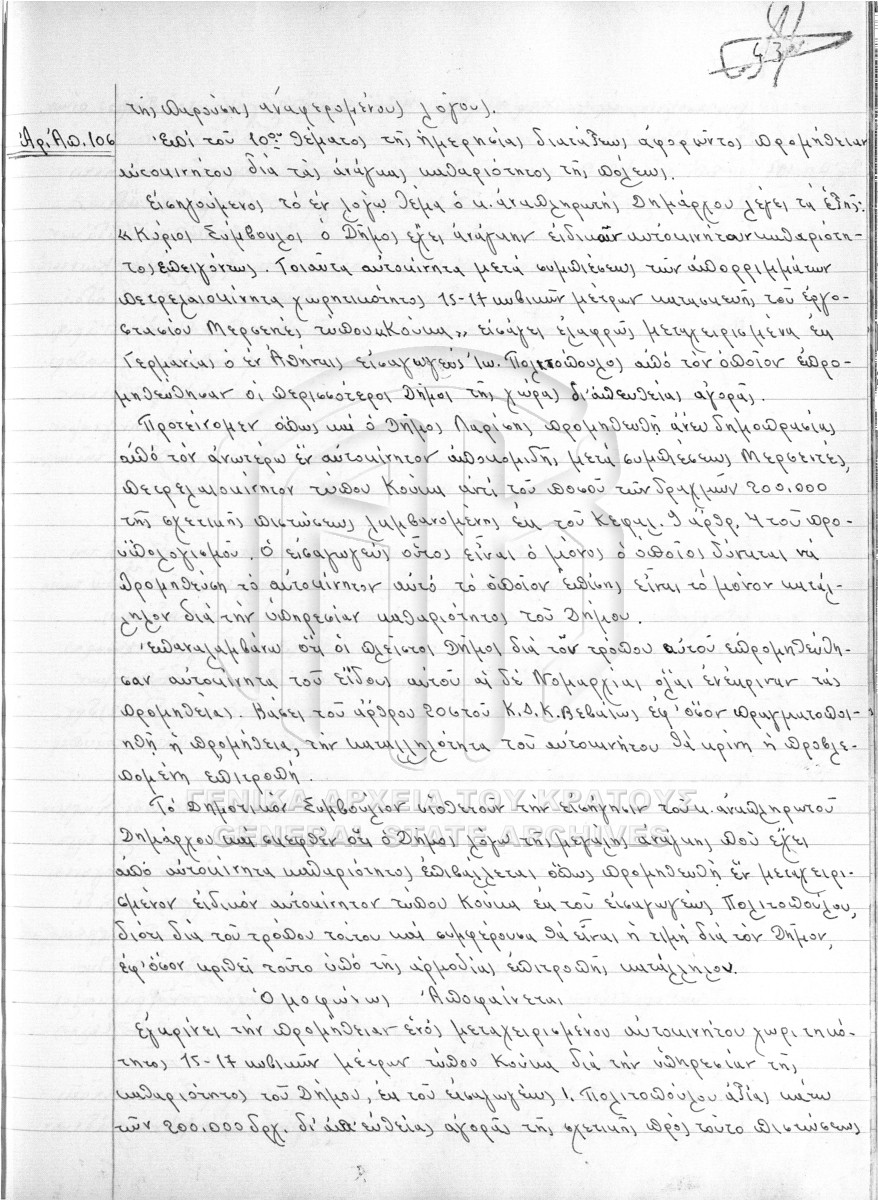 43
τῆς παρούσης ἀναφερομένους λόγους.
Ἀρ. Ἀπ. 106
Ἐπί τοῦ 10ου θέματος τῆς ἡμερησίας διατάξεως ἀφορῶντος προμήθειαν
αὐτοκινήτου διά τάς ἀνάγκας καθαριότητος τῆς πόλεως.
Εἰσηγούμενος τό ἐν λόγῳ θέμα ὁ κ. ἀναπληρωτής Δημάρχου λέγει τά ἑξῆς:
«Κύριοι Σύμβουλοι ὁ Δῆμος ἔχει ἀνάγκην εἰδικῶν αὐτοκινήτων καθαριότη-
τος ἐπειγόντως. Τοιαῦτα αὐτοκίνητα μετά συμπιέσεως τῶν ἀπορριμμάτων
πετρελαιοκίνητα χωρητικότητος 15-17 κυβικῶν μέτρων κατασκευῆς τοῦ ἐργο-
στασίου Μερσεντές τύπου «Κούκα» εἰσάγει ἐλαφρῶς μεταχειρισμένα ἐκ
Γερμανίας ὁ ἐν Ἀθήναις εἰσαγωγεύς Ἰω. Πολιτόπουλος ἀπό τόν ὁποῖον ἐπρο-
μηθεύθησαν οἱ περισσότεροι Δῆμοι τῆς χώρας δι' ἀπευθείας ἀγορᾶς.
Προτείνομεν ὅπως καί ὁ Δῆμος Λαρίσης προμηθευθῆ ἄνευ δημοπρασίας
ἀπό τόν ἀνωτέρω ἕν αὐτοκίνητον ἀποκομιδῆς μετά συμπιέσεως Μερσεντές,
πετρελαιοκίνητον τύπου Κούκα ἀντί τοῦ ποσοῦ τῶν δραχμῶν 200.000
τῆς σχετικῆς πιστώσεως λαμβανομένης ἐκ τοῦ Κεφαλ. 9 ἄρθρ. 4 τοῦ προ-
ϋπολογισμοῦ. Ὁ εἰσαγωγεύς οὗτος εἶναι ὁ μόνος ὁ ὁποῖος δύναται νά
προμηθεύση τό αὐτοκίνητον αὐτό τό ὁποῖον ἐπίσης εἶναι τό μόνον κατάλ-
ληλον διά τήν ὑπηρεσίαν καθαριότητος τοῦ Δήμου.
Ἐπαναλαμβάνω ὅτι οἱ πλεῖστοι Δῆμοι διά τόν τρόπου αὐτοῦ ἐπρομηθεύθη-
σαν αὐτοκίνητα τοῦ εἴδους αὐτοῦ αἱ δέ Νομαρχίαι ὅλαι ἐνέκριναν τάς
προμηθείας. Βάσει τοῦ ἄρθρου 206 τοῦ Κ.Δ.Κ. Βεβαίως ἐφ' ὅσον πραγματοποι-
ηθῆ ἡ προμήθεια, τήν καταλληλότητα τοῦ αὐτοκινήτου θά κρίνη ἡ προβλε-
πομένη ἐπιτροπή.
Τό Δημοτικόν Συμβούλιον υἱοθετοῦν τήν εἰσήγησιν τοῦ κ. ἀναπληρωτοῦ
Δημάρχου καί σκεφθέν ὅτι ὁ Δῆμος λόγῳ τῆς μεγάλης ἀνάγκης πού ἔχει
ἀπό αὐτοκίνητα καθαριότητος ἐπιβάλλεται ὅπως προμηθευθῆ ἕν μεταχειρι-
σμένον εἰδικόν αὐτοκίνητον τύπου Κούκα ἐκ τοῦ εἰσαγωγέως Πολιτοπούλου,
διότι διά τοῦ τρόπου τούτου καί συμφέρουσα θά εἶναι ἡ τιμή διά τόν Δῆμον,
ἐφ' ὅσον κριθεῖ τοῦτο ὑπό τῆς ἁρμοδίας ἐπιτροπῆς κατάλληλον.
Ὁμοφώνως Ἀποφαίνεται
Ἐγκρίνει τήν προμήθειαν ἑνός μεταχειρισμένου αὐτοκινήτου χωριτηκό-
τητος 15-17 κυβικῶν μέτρων τύπου Κούκα διά τήν ὑπηρεσίαν τῆς
καθαριότητος τοῦ Δήμου, ἐκ τοῦ εἰσαγωγέως Ι. Πολιτοπούλου ἀξίας κάτω
τῶν 200.000 δρχ. δι' ἀπ' εὐθείας ἀγορᾶς τῆς σχετικῆς πρός τοῦτο πιστώσεως
ΓΕΝΙΚΑ ΑΡΧΕΙΑ ΤΟΥ ΚΡΑΤΟΥΣ
GENERAL STATE ARCHIVES